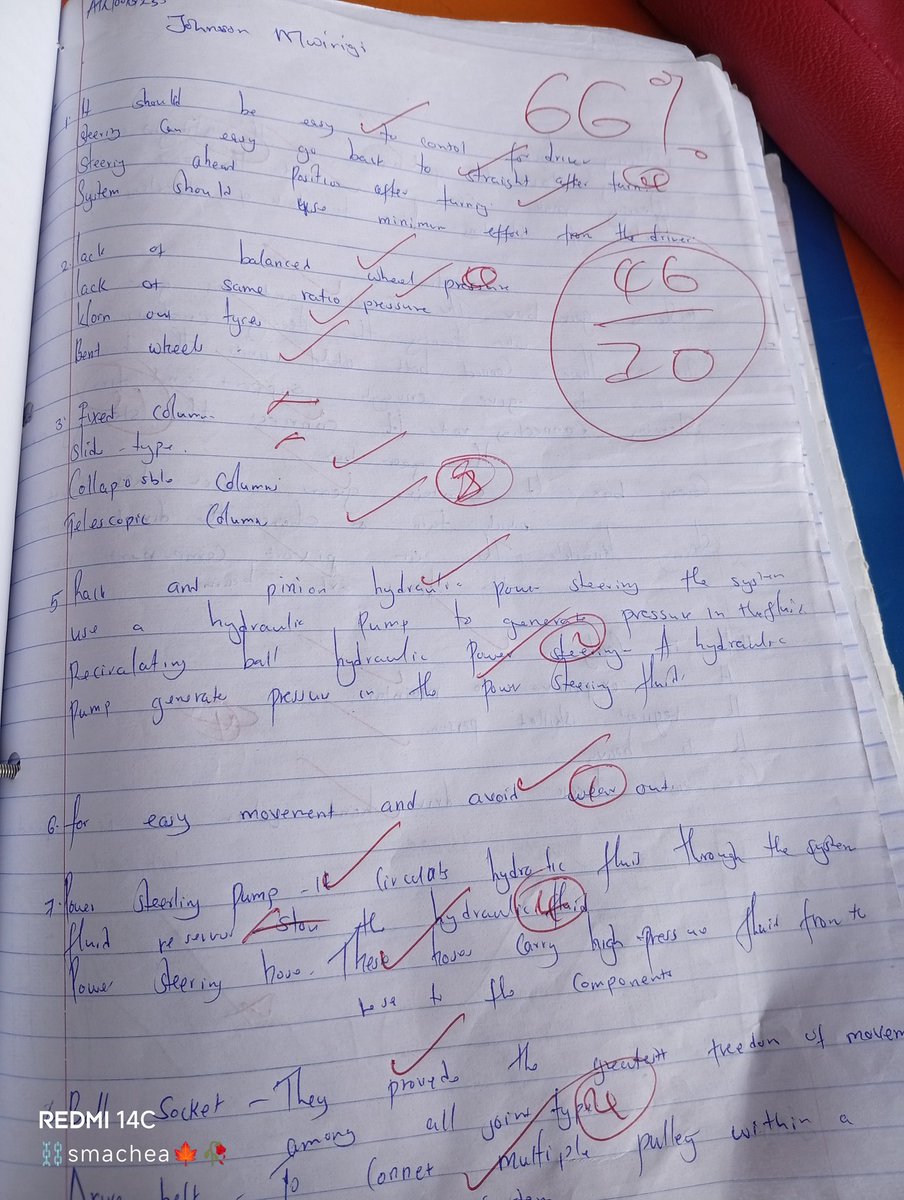 Johnson Mwirigi
66%
1. It should be easy to control for driver
steering can easy go back to straight after turning
Steering ahead position after turning.
System should use minimum effort from the driver
46
20
2. lack of balanced wheel pressure
lack of same ratio pressure
Worn out tyre
Bent wheel.
3. Fixed column
slide-type.
Collapsible column
Telescopic Column
5. Rack and pinion hydraulic power steering the system
use a hydraulic pump to generate pressure in the fluid
Recirculating ball hydraulic power steering- A hydraulic
pump generate pressure in the power steering fluid.
6. for easy movement and avoid wear out.
7. Power steering pump - it circulate hydraulic fluid through the system
fluid the hydraulic fluid
Power steering hose. These hoses carry high-pressure fluid from the
to the components
Socket - They provide the greatest freedom of
among all joint type
belt - to connect multiple pulley within a
REDMI 14C
smachea